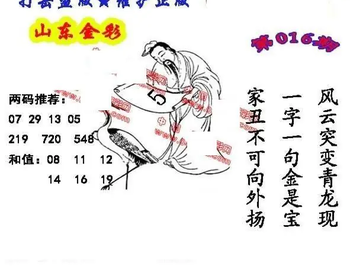 打击盗版 维护正版
山东金彩
第016期
两码推荐：
07 29 13 05
219 720 548
和值：08 11 12
14 16 19
5
风云突变青龙现
一字一句金是宝
家丑不可向外扬